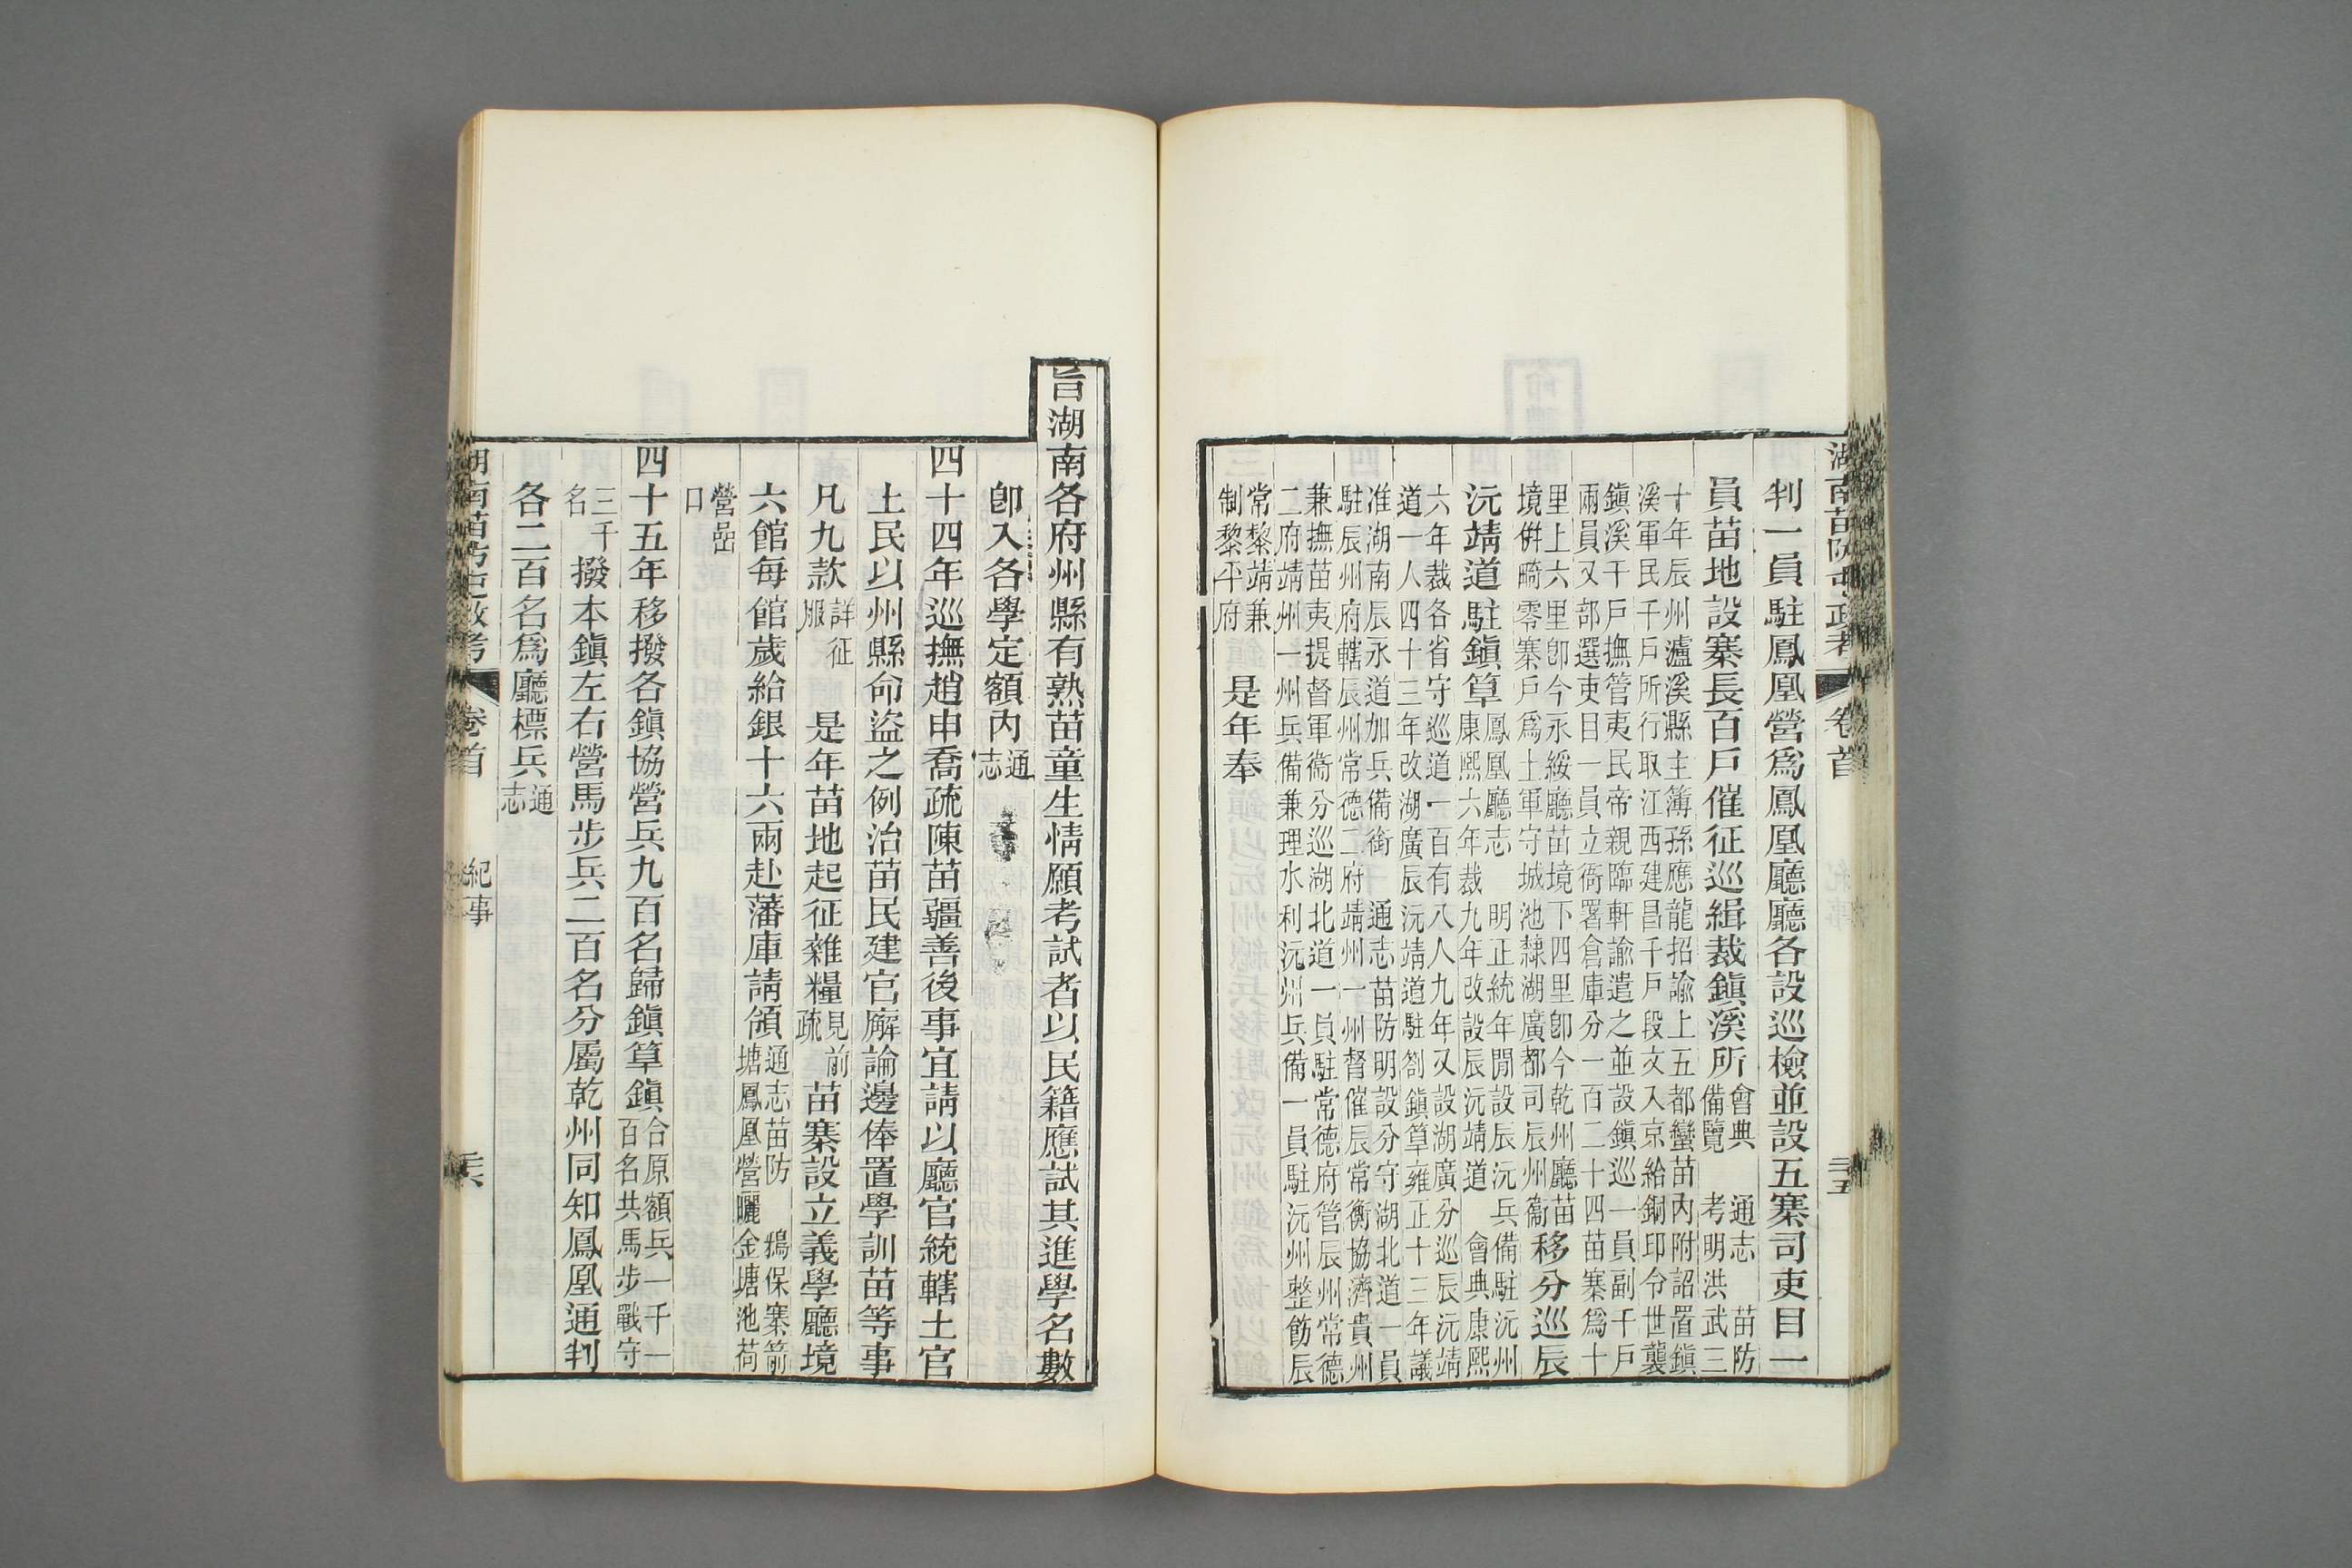 湖南苗防屯政考 卷首 二十五
判一員駐鳳凰營爲鳳凰廳廳各設巡檢並設五寨司吏目一
員苗地設寨長百戶催征巡緝裁鎭溪所
會典 通志 苗防
備覽 考明洪武三
十年辰州瀘溪縣主簿孫應龍招諭上五都蠻苗內附詔置鎭
溪軍民千戶所行取江西建昌千戶段文入京給銅印令世襲
鎭溪千戶撫管夷民帝親臨軒諭遣之並設鎭巡一員副千戶
兩員又部選吏目一員立衙署倉庫分一百二十四苗寨爲十
里上六里卽今永綏廳苗境下四里卽今乾州廳苗
境併畸零寨戶爲土軍守城池隸湖廣都司辰州衞
移分巡辰
沅靖道駐鎭筸
鳳凰廳志 明正統年閒設辰沅兵備駐沅州
康熙六年裁九年改設辰沅靖道 會典康熙
六年裁各省守巡道一百有八人九年又設湖廣分巡辰沅靖
道一人四十三年改湖廣辰沅靖道駐劄鎭筸雍正十三年議
准湖南辰永道加兵備銜 通志苗防明設分守湖北道一員
駐辰州府轄辰州常德二府靖州一州督催辰常衡協濟貴州
兼撫苗夷提督軍衞分巡湖北道一員駐常德府管辰州常德
二府靖州一州兵備兼理水利沅州兵備一員駐沅州整飭辰
常黎靖兼
制黎平府
是年奉
旨湖南各府州縣有熟苗童生情願考試者以民籍應試其進學名數
卽入各學定額內
通
志
四十四年巡撫趙申喬疏陳苗疆善後事宜請以廳官統轄土官
土民以州縣命盜之例治苗民建官廨論邊俸置學訓苗等事
凡九款
詳征
服
是年苗地起征雜糧
見前
疏
苗寨設立義學廳境
六館每館歲給銀十六兩赴藩庫請領
通志苗防 鴉保寨箭
塘鳳凰營曬金塘池荷
營嵒
口
四十五年移撥各鎭協營兵九百名歸鎭筸鎭
合原額兵一千一
百名共馬步戰守
三千
名
撥本鎭左右營馬步兵二百名分屬乾州同知鳳凰通判
各二百名爲廳標兵
通
志
湖南苗防屯政考 卷首 紀事 二十六